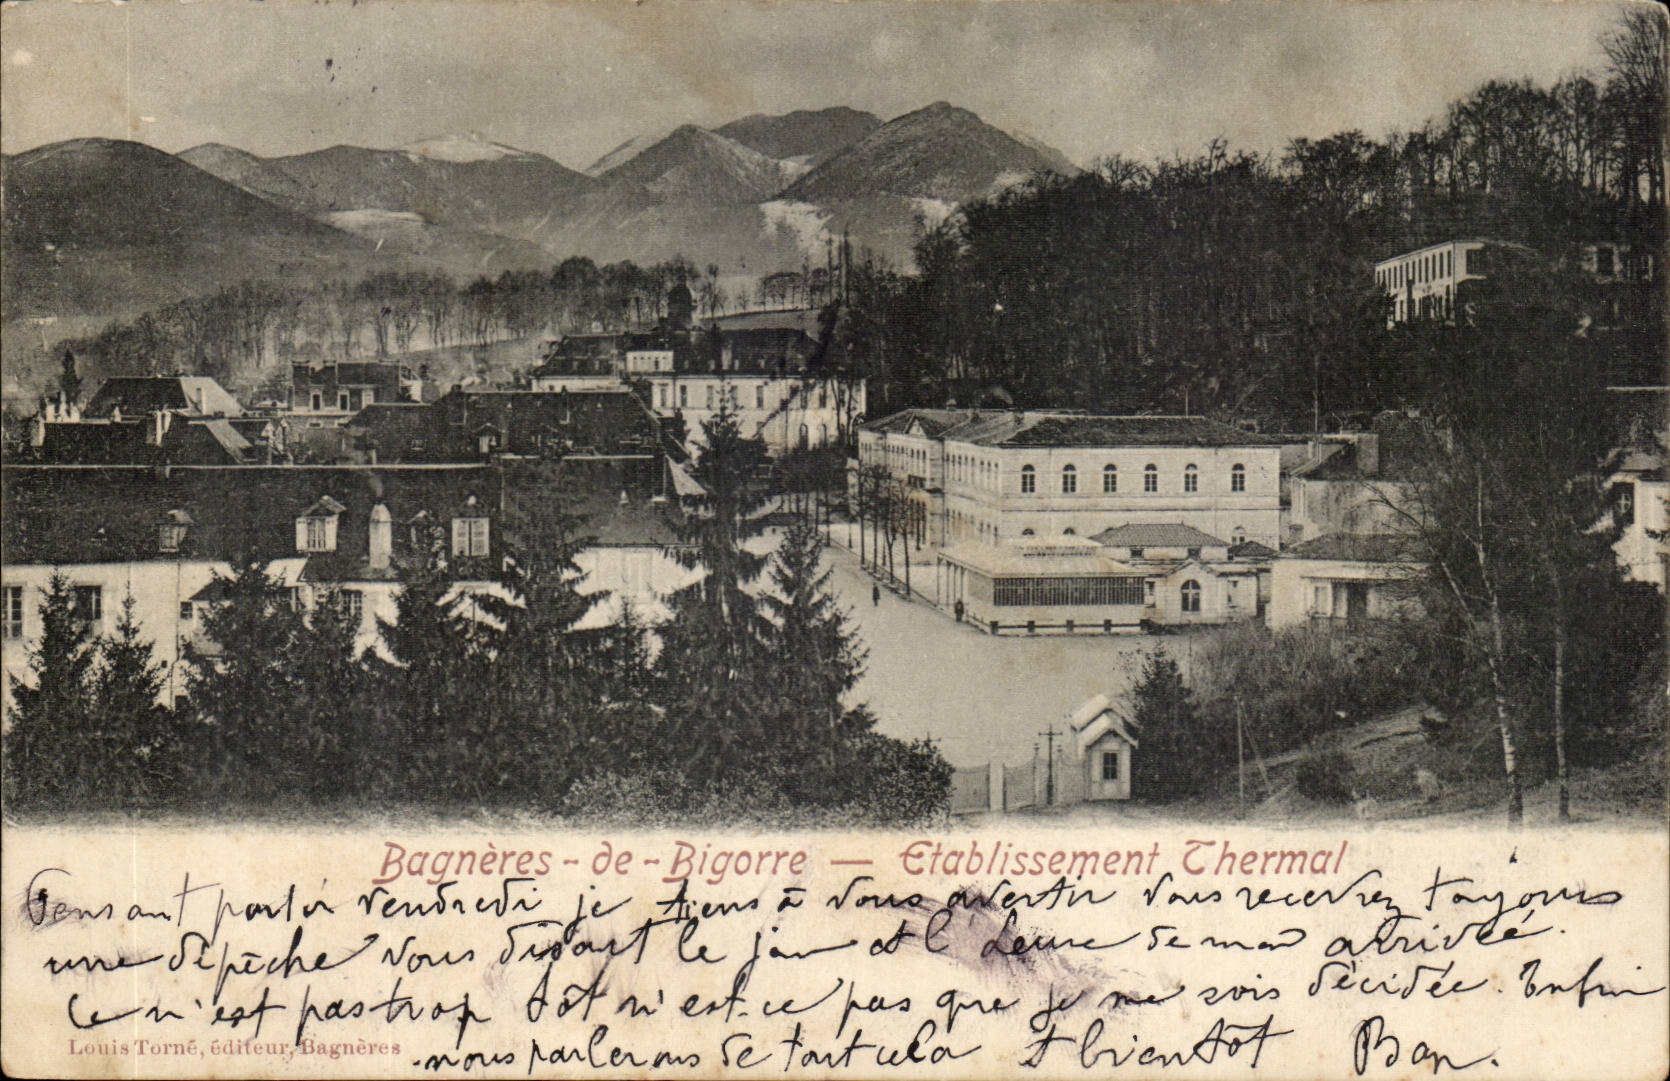 Bagnères-de-Bigorre — Etablissement Thermal
Pensant partir vendredi je tiens à vous avertir vous recevrez toujours
une dépêche vous disant le jour et l'heure de mon arrivée.
Ce n'est pas trop tôt n'est-ce pas que je me sois décidée. Enfin
nous parlerons de tout cela
Louis Torné, éditeur, Bagnères
A bientôt